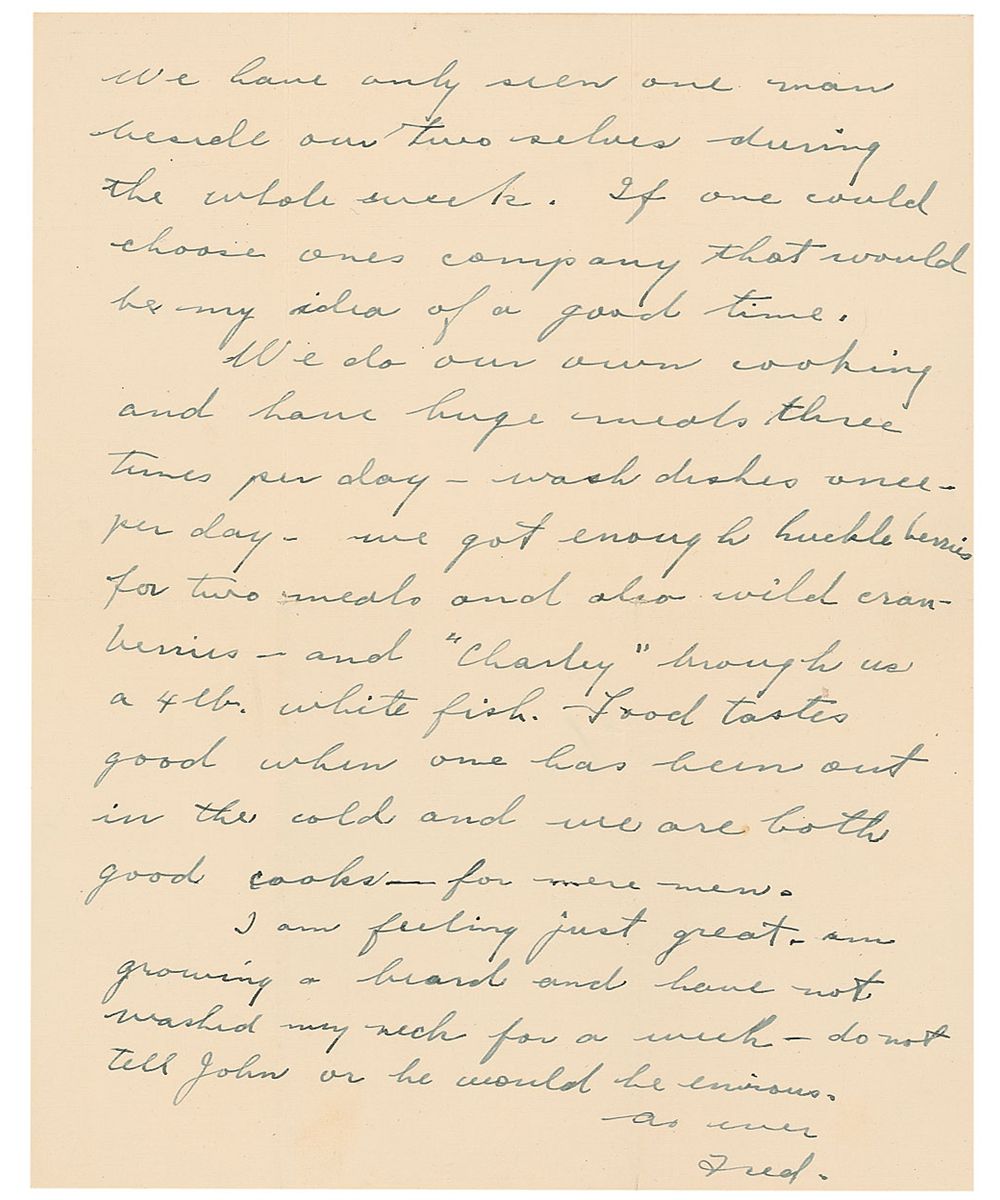 We have only seen one man
beside our two selves during
the whole week. If one could
choose ones company that would
be my idea of a good time.
We do our own cooking
and have huge meals three
times per day - wash dishes once -
per day - we got enough huckle berries
for two meals and also wild cran-
berries - and "Charley" brough us
a 4 lb. white fish. Food tastes
good when one has been out
in the cold and we are both
good cooks - for mere men.
I am feeling just great - am
growing a beard and have not
washed my neck for a week - do not
tell John or he would be envious.
As ever
Fred.